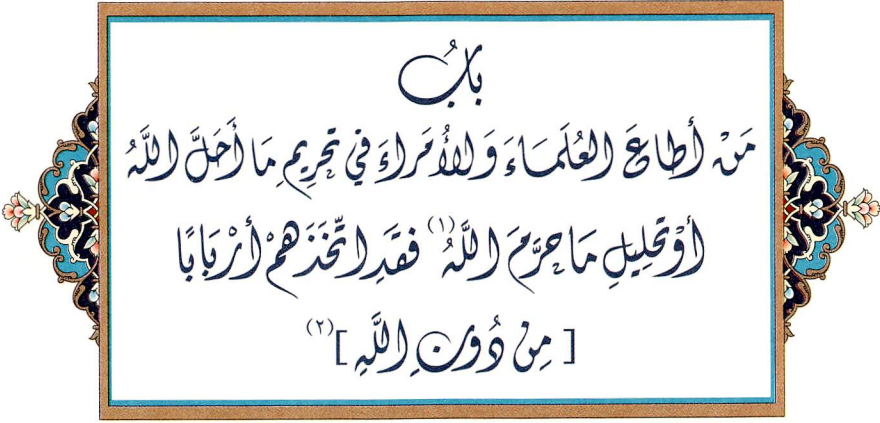 بابُ
مَنْ أَطَاعَ العُلَمَاءَ وَالأُمَرَاءَ فِي تَحْرِيمِ مَا أَحَلَّ اللَّهُ
أَوْ تَحْلِيلِ مَا حَرَّمَ اللَّهُ (١) فَقَدِ اتَّخَذَهُمْ أَرْبَابًا
[ مِن دُونِ اللَّهِ ] (٢)